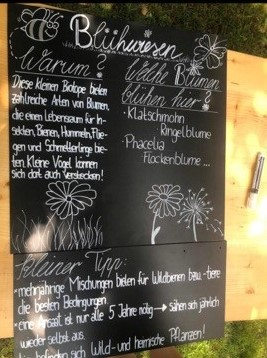 Blühwiesen
Warum?
Diese kleinen Biotope bieten
zahlreiche Arten von Blumen,
die einen Lebensraum für In-
sekten, Bienen, Hummeln, Flie-
gen und Schmetterlinge bie-
ten. Kleine Vögel können
sich dort auch verstecken!
Welche Blumen
blühen hier?
• Klatschmohn
Ringelblume
• Phacelia
Flockenblume ...
Kleiner Tipp:
• mehrjährige Mischungen bieten für Wildbienen bzw. -tiere
die besten Bedingungen
• eine Ansaat ist nur alle 5 Jahre nötig → sähen sich jährlich
wieder selbst aus
befinden sich Wild- und heimische Pflanzen!